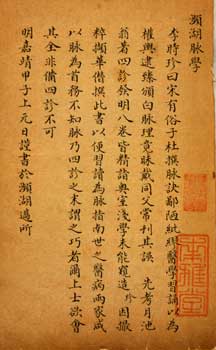 瀕湖脉學
李時珍曰宋有俗子杜撰脉訣鄙陋紕繆醫學習誦以為
權輿逮臻頒白脉理竟昧戴同父常刊其誤 先考月池
翁著四診發明八卷皆精詣奧室淺學未能窺造珍因撮
粹擷華僭撰此書以便習讀為脉指南世之醫病兩家咸
以脉為首務不知脉乃四診之末謂之巧者爾上士欲會
其全非備四診不可
明嘉靖甲子上元日謹書於瀕湖薖所